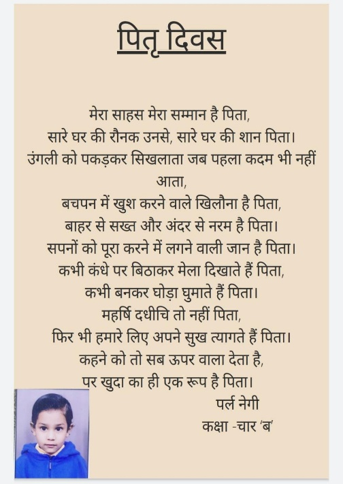 पितृ दिवस
मेरा साहस मेरा सम्मान है पिता,
सारे घर की रौनक उनसे, सारे घर की शान पिता।
उंगली को पकड़कर सिखलाता जब पहला कदम भी नहीं
आता,
बचपन में खुश करने वाले खिलौना है पिता,
बाहर से सख्त और अंदर से नरम है पिता।
सपनों को पूरा करने में लगने वाली जान है पिता।
कभी कंधे पर बिठाकर मेला दिखाते हैं पिता,
कभी बनकर घोड़ा घुमाते हैं पिता।
महर्षि दधीचि तो नहीं पिता,
फिर भी हमारे लिए अपने सुख त्यागते हैं पिता।
कहने को तो सब ऊपर वाला देता है,
पर खुदा का ही एक रूप है पिता।
पर्ल नेगी
कक्षा -चार ‘ब’